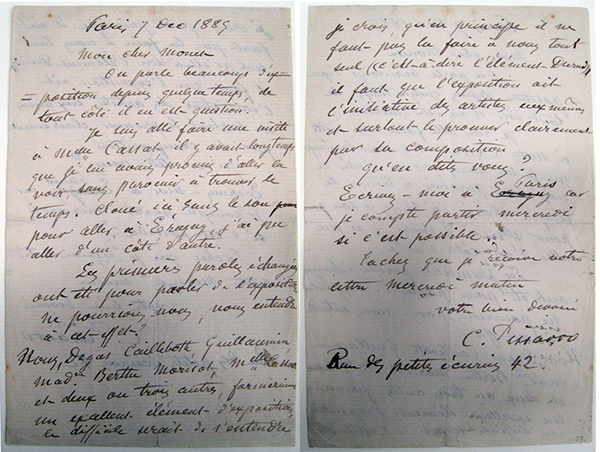 Paris 7 Dec 1885
Mon cher Monet
On parle beaucoup d'ex-
=position depuis quelque temps, de
tout côté il en est question.
Je suis allé faire une visite
à Melle Cassat il y avait longtemps
que je lui avais promis d'aller la
voir sans parvenir à trouver le
temps. Cloué ici sans le sou
pour aller à Éragny j'ai pu
aller d'un côté d'autre.
Les premières paroles échangées
ont été pour parler de l'exposition
ne pourrions-nous, nous entendre
à cet effet?
Nous, Degas Caillebotte Guillaumin
mad. Berthe Morisot, Melle Cassat
et deux ou trois autres, formerions
un excellent élément d'exposition,
le difficile serait de s'entendre
je crois, qu'en principe il ne
faut pas la faire à nous tout
seul (c'est-à-dire l'élément Durand)
il faut que l'exposition ait
l'initiative des artistes eux mêmes
et surtout le prouver clairement
par sa composition
qu'en dites vous?
Ecrivez-moi à Paris car
je compte partir mercredi
si c'est possible.
Tachez que je reçoive votre
lettre mercredi matin
votre bien dévoué
C. Pissarro
Rue des petites écuries 42.